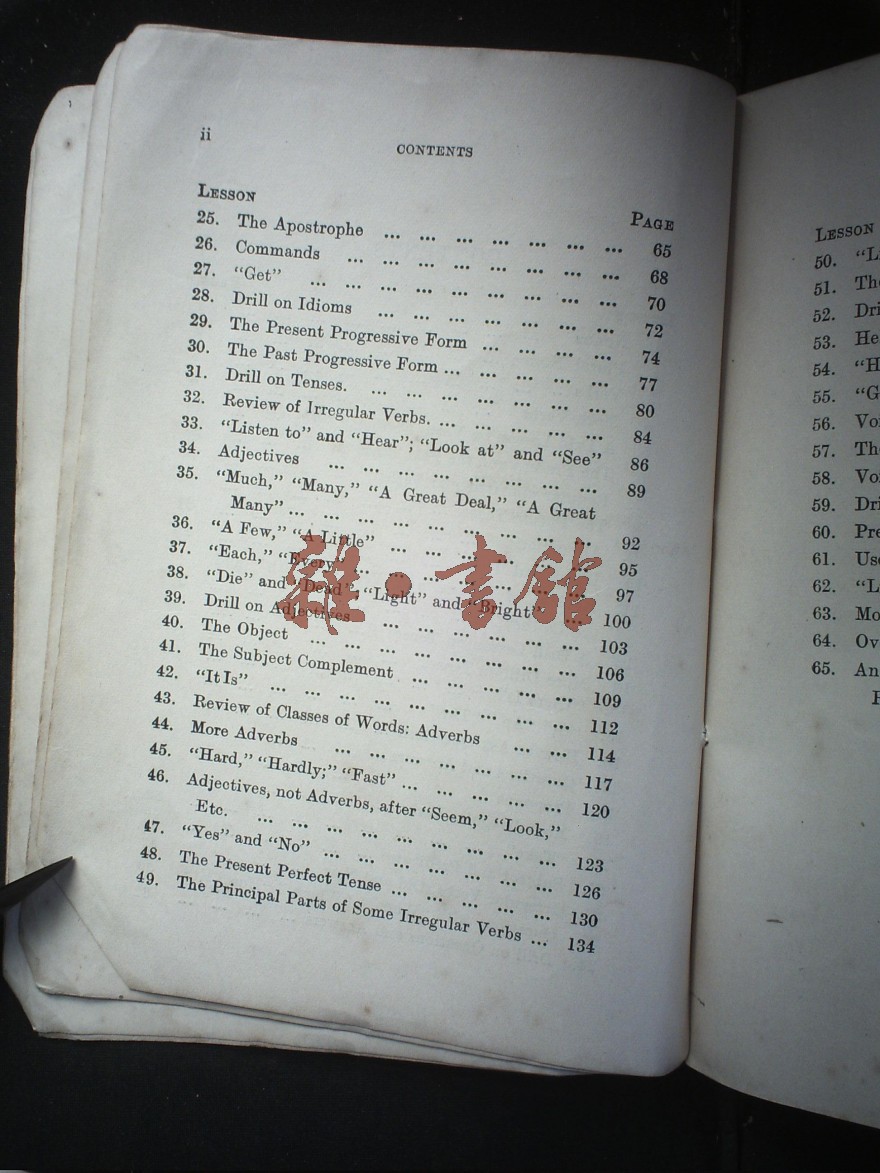 ii
CONTENTS
LESSON PAGE
25. The Apostrophe ... ... ... ... ... ... ... 65
26. Commands ... ... ... ... ... ... ... ... 68
27. "Get" ... ... ... ... ... ... ... ... ... 70
28. Drill on Idioms ... ... ... ... ... ... ... 72
29. The Present Progressive Form ... ... ... ... 74
30. The Past Progressive Form ... ... ... ... ... 77
31. Drill on Tenses. ... ... ... ... ... ... ... 80
32. Review of Irregular Verbs. ... ... ... ... ... 84
33. "Listen to" and "Hear"; "Look at" and "See" 86
34. Adjectives ... ... ... ... ... ... ... ... 89
35. "Much," "Many," "A Great Deal," "A Great
Many" ... ... ... ... ... ... ... ... ... 92
36. "A Few," "A Little" ... ... ... ... ... ... 95
37. "Each," "Every" ... ... ... ... ... ... ... 97
38. "Die" and "Dead"; "Light" and "Bright" ... 100
39. Drill on Adjectives ... ... ... ... ... ... ... 103
40. The Object ... ... ... ... ... ... ... ... 106
41. The Subject Complement ... ... ... ... ... 109
42. "It Is" ... ... ... ... ... ... ... ... ... 112
43. Review of Classes of Words: Adverbs ... ... 114
44. More Adverbs ... ... ... ... ... ... ... 117
45. "Hard," "Hardly;" "Fast" ... ... ... ... ... 120
46. Adjectives, not Adverbs, after "Seem," "Look,"
Etc. ... ... ... ... ... ... ... ... ... 123
47. "Yes" and "No" ... ... ... ... ... ... ... 126
48. The Present Perfect Tense ... ... ... ... ... 130
49. The Principal Parts of Some Irregular Verbs ... 134
雜·書館
LESSON
50. "L
51. Th
52. Dri
53. He
54. "H
55. "G
56. Vo
57. Th
58. Vo
59. Dri
60. Pre
61. Use
62. "L
63. Mo
64. Ov
65. An